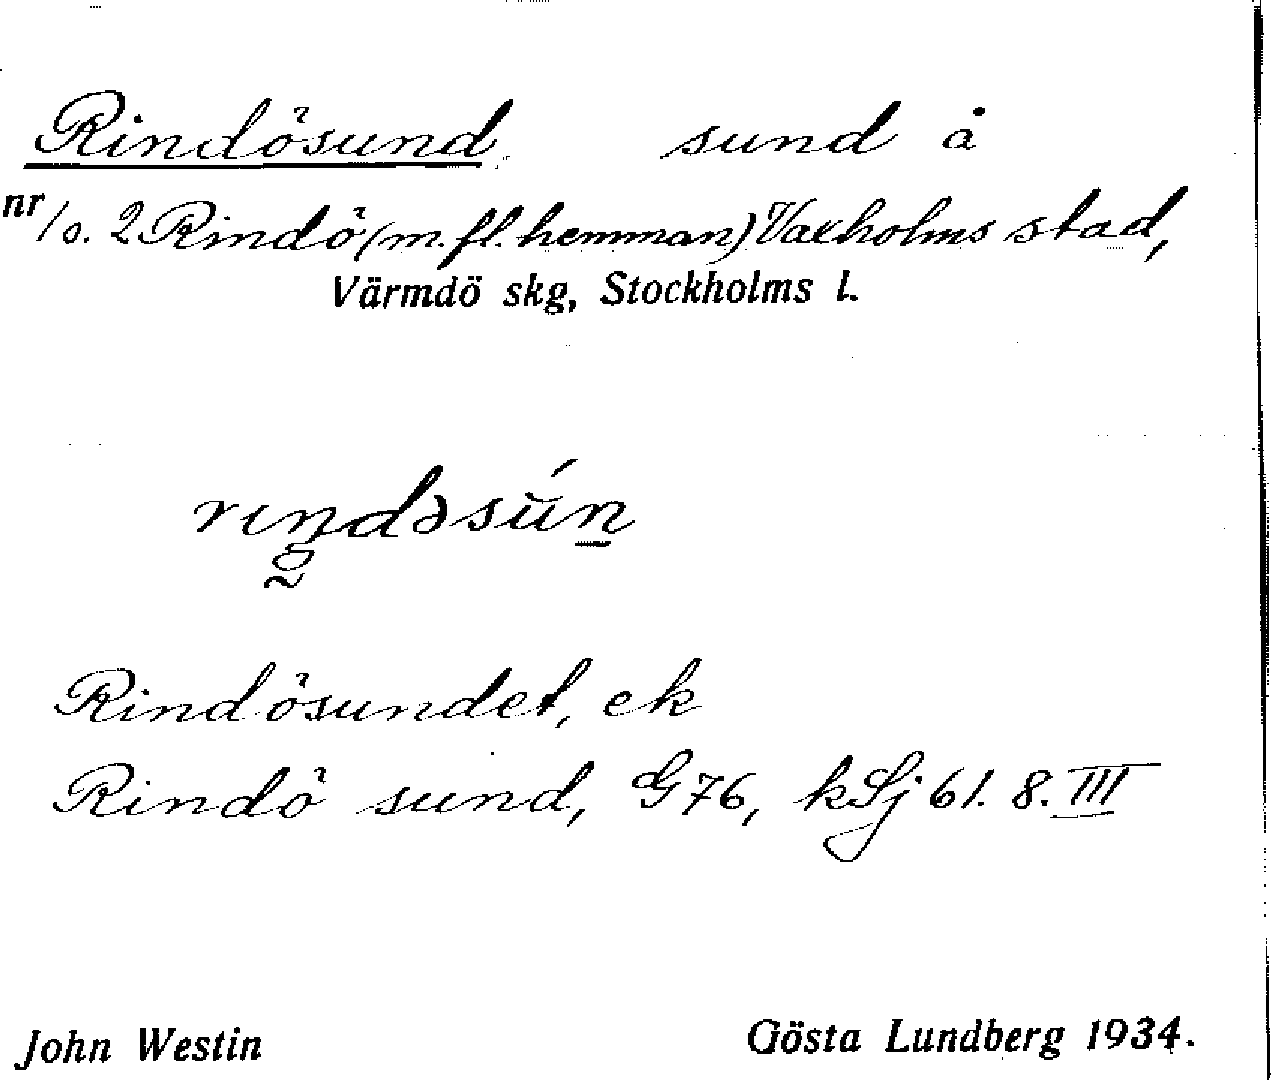 Rindösund sund å
nr 1 o. 2 Rindö (m. fl. hemman) Vaxholms stad,
Värmdö skg, Stockholms l.
Rindösundet, ek
Rindö sund, G76, kSj 61. 8. III
John Westin Gösta Lundberg 1934.